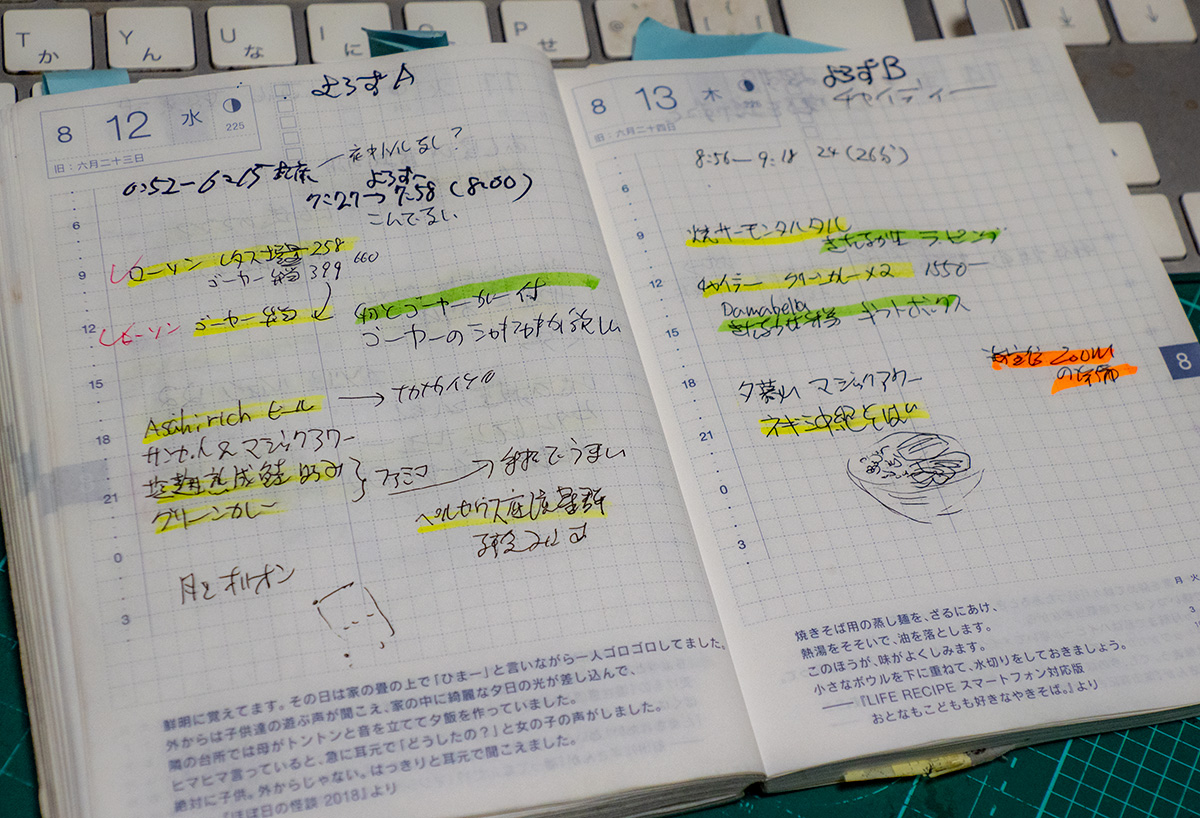 T
か
Y
ん
U
な
I
に
P
せ
@
8 12 水
225
旧：六月二十三日
よろずA
0:52-6:15
7:27→7:58 (8:00)
こんでるい
6
9
12
15
18
21
0
3
ローソン レタス 258
ゴーヤー弁当 399 660
ローソン ゴーヤー弁当
ゴーヤーカレー付
ゴーヤーのシャキシャキ
Asahi rich ビール →
マジックアワー
熟成鮭
ファミマ
うまい
グリーンカレー
ペルセウス座流星群
月とオリオン
鮮明に覚えてます。その日は家の畳の上で「ひまー」と言いながら一人ゴロゴロしてました。
外からは子供達の遊ぶ声が聞こえ、家の中に綺麗な夕日の光が差し込んで、
隣の台所では母がトントンと音を立てて夕飯を作っていました。
ヒマヒマ言っていると、急に耳元で「どうしたの？」と女の子の声がしました。
絶対に子供。外からじゃない。はっきりと耳元で聞こえました。
『ほぼ日の怪談 2018』より
8 13 木
旧：六月二十四日
よろずB
チャイディー
8:56-9:18 24 (26分)
6
9
12
15
18
21
0
3
焼サーモンタルタル
ラッピング
チャイデー グリーンカレー×2 1550-
Damabelly
ギフトボックス
ZOOM
の準備
8
夕暮れ マジックアワー
ネギ沖縄そば
月 火
3
焼きそば用の蒸し麺を、ざるにあけ、
熱湯をそそいで、油を落とします。
このほうが、味がよくしみます。
小さなボウルを下に重ねて、水切りをしておきましょう。
――『LIFE RECIPE スマートフォン対応版
おとなもこどもも好きなやきそば。』より